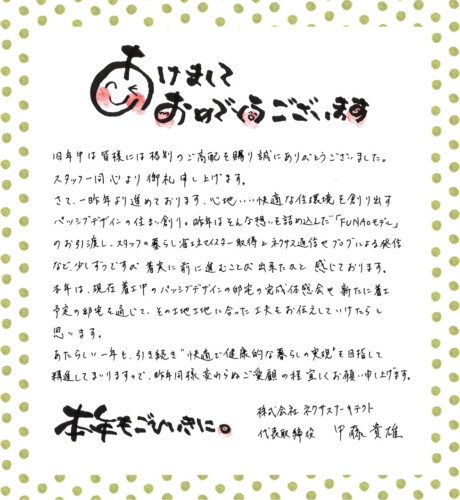 あけまして
おめでとうございます
旧年中は皆様には格別のご高配を賜り誠にありがとうございました。
スタッフ一同心より御礼申し上げます。
さて、一昨年より進めております、心地いい快適な住環境を創り出す
パッシブデザインの住まい創り。昨年はそんな想いを詰め込んだ「FUNACモデル」
のお引渡し、スタッフの暮らし省エネマイスター取得とネクサス通信やブログによる発信
など少しずつですが着実に前に進むことが出来たかと感じております。
本年は、現在着工中のパッシブデザインの邸宅の完成体感会や新たに着工
予定の邸宅を通じて、その土地土地に合った工夫もお伝えしていけたらと
思います。
あたらしい一年も、引き続き"快適で健康的な暮らしの実現"を目指して
精進してまいりますので、昨年同様変わらぬご愛顧の程宜しくお願い申し上げます。
本年もごひいきに。
株式会社 ネクサスアーキテクト
代表取締役 伊藤貴雄